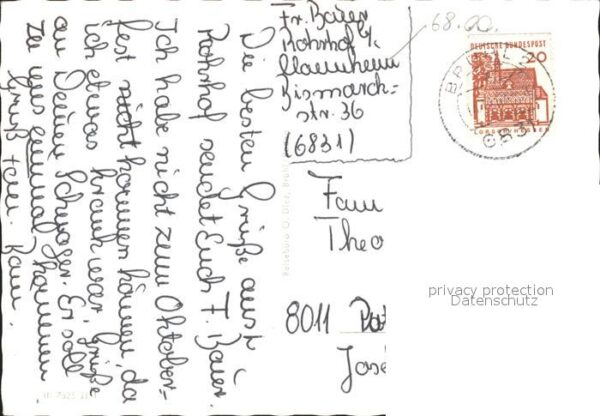 Fr. Bauer
Rohrhof b/
Mannheim
Bismarck=
str. 36
(6831)
68.00.
DEUTSCHE BUNDESPOST
20
Die besten Grüße aus
Rohrhof sendet Euch F. Bauer
Ich habe nicht zum Oktober-
fest nicht kommen können, da
ich etwas krank war. Grüße
an Deinen Schwager. Er soll
zu uns einmal kommen
Gruß Fam. Bauer.
Fam
Theo
8011
José
privacy protection
Datenschutz